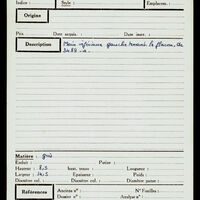 Indice : Style : Emplacem. :
Origine
Prix Date acquis. : Date inv. :
Description Main inférieure gauche tenant le flacon, de
3488. a.
Matière : grès
Entier : Partie :
Hauteur : 8,5 haut. cons. : Longueur :
Largeur : 14,5 Epaisseur : Poids :
Diamètre col. : Diamètre ouv. : Diamètre panse :
Références Anciens nº : Nº Fouilles :
Dossier nº : Analyse nº :